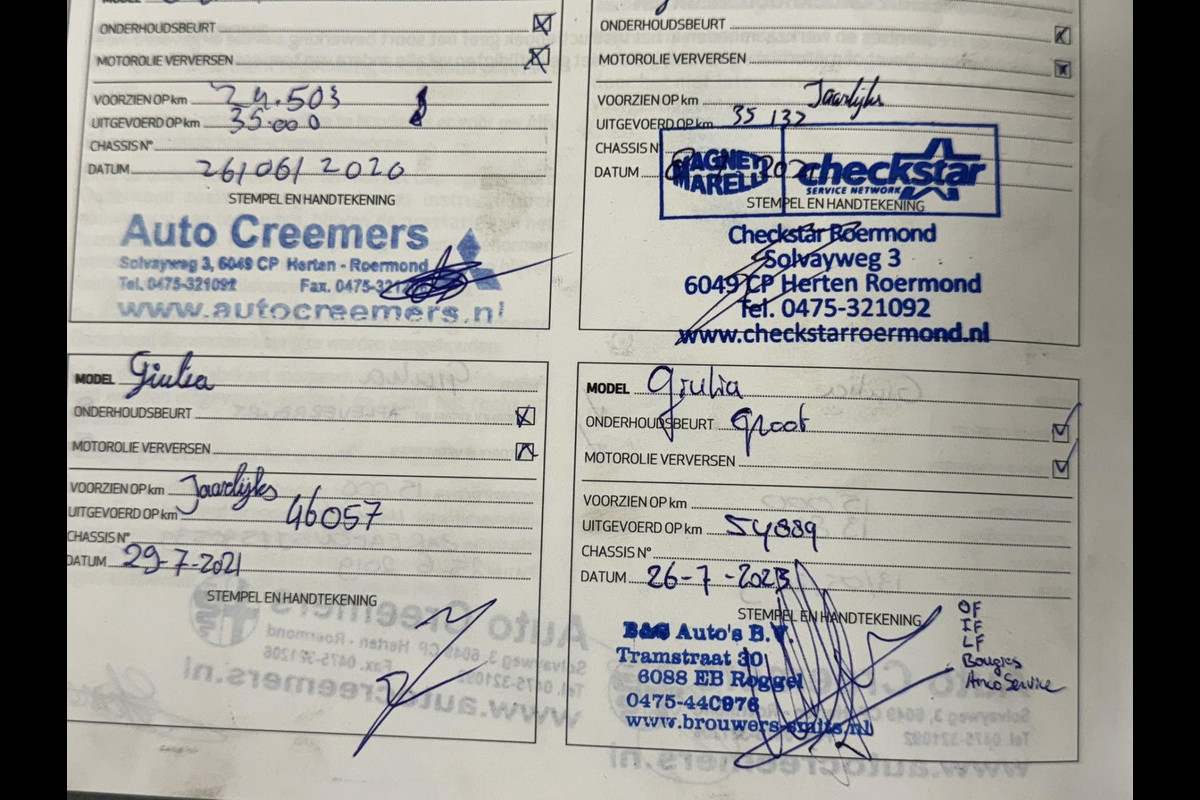 MODEL
ONDERHOUDSBEURT
MOTOROLIE VERVERSEN
VOORZIEN OP km 24.503
UITGEVOERD OP km 35.000
CHASSIS N°
DATUM 26/06/2020
STEMPEL EN HANDTEKENING
Auto Creemers
Solvayweg 3, 6049 CP Herten - Roermond
Tel. 0475-321092 Fax. 0475-321206
www.autocreemers.nl
ONDERHOUDSBEURT
MOTOROLIE VERVERSEN
VOORZIEN OP km Jaarlijks
UITGEVOERD OP km 35 137
CHASSIS N°
DATUM
MAGNETI MARELLI
checkstar
SERVICE NETWORK
STEMPEL EN HANDTEKENING
Checkstar Roermond
Solvayweg 3
6049 CP Herten Roermond
Tel. 0475-321092
www.checkstarroermond.nl
MODEL Giulia
ONDERHOUDSBEURT
MOTOROLIE VERVERSEN
VOORZIEN OP km Jaarlijks
UITGEVOERD OP km 46057
CHASSIS N°
DATUM 29-7-2021
STEMPEL EN HANDTEKENING
MODEL Giulia
ONDERHOUDSBEURT Groot
MOTOROLIE VERVERSEN
VOORZIEN OP km
UITGEVOERD OP km 54889
CHASSIS N°
DATUM 26-7-2023
STEMPEL EN HANDTEKENING
B&S Auto's B.V.
Tramstraat 30
6088 EB Roggel
0475-440976
www.brouwers-smits.nl
OF
IF
LF
Bougies
Arco Service